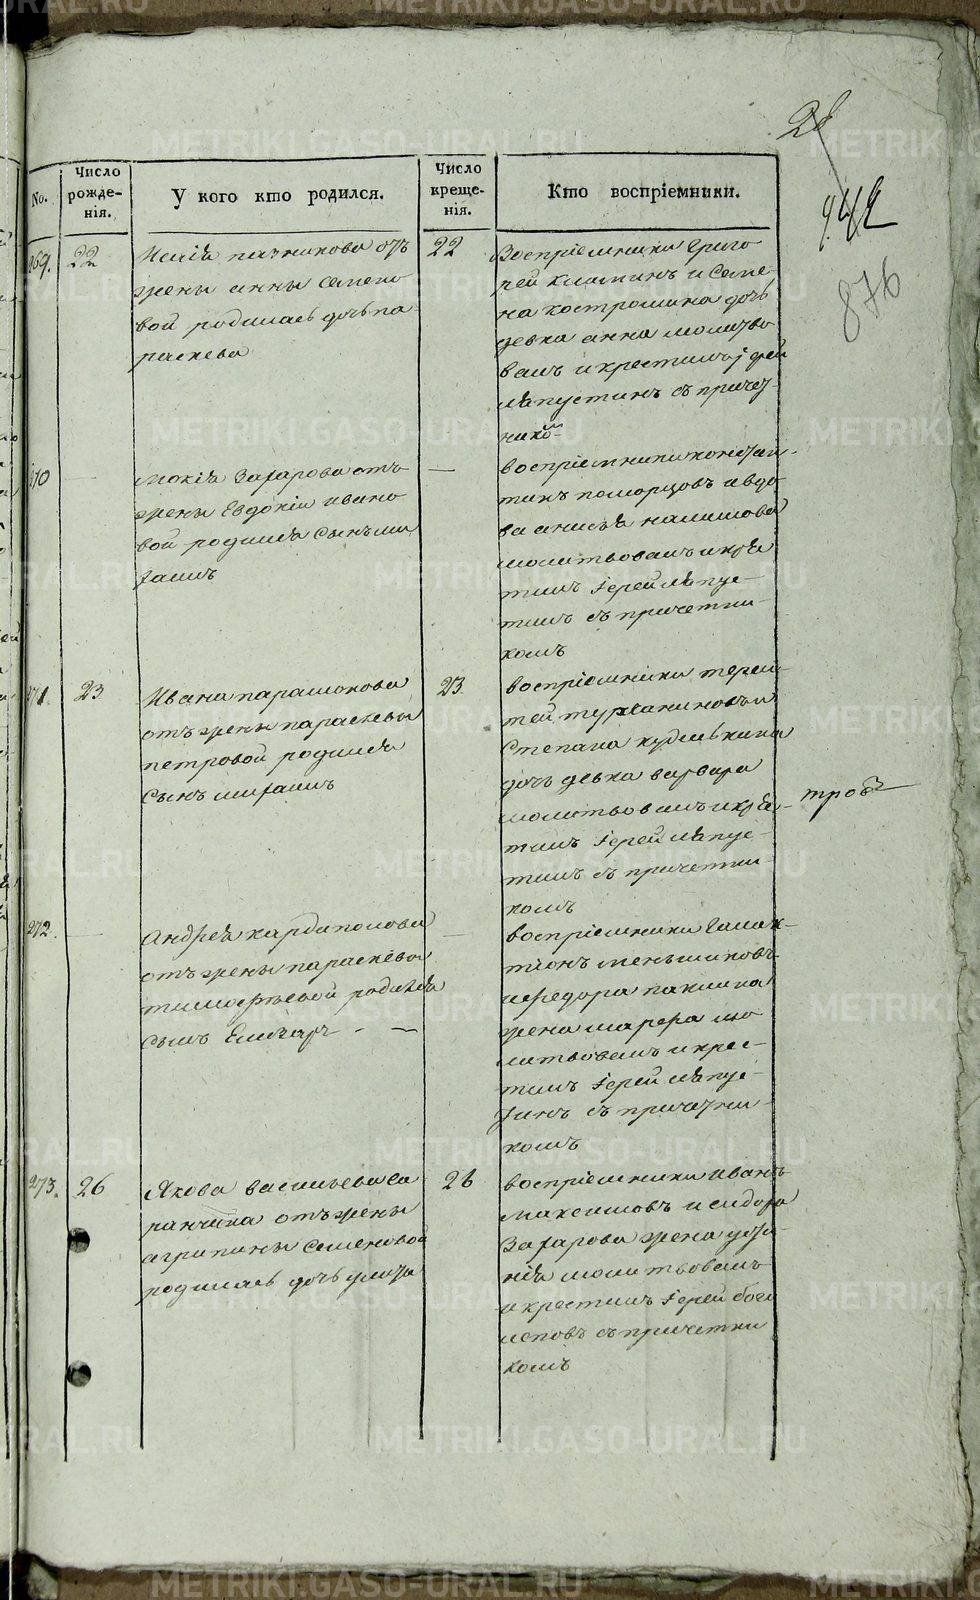 28
942
876
No.
Число рожде-нія.
У кого кто родился.
Число креще-нія.
Кто воспріемники.
269.
22
Исаія пазникова отъ
жены анны семено
вой родилась дочь па
раскева
22
Воспріемники Григо
рей и Семе
на костромина дочь
девка анна молитво
валъ и крестилъ іерей
ляпустинъ съ причет
никомъ
270
—
мокія Захарова отъ
жены Евдокіи ивано
вой родился сынъ ми
хаилъ
—
воспріемники констан-
тинъ поморцовъ и вдо
ва анисья
молитвовалъ и кре
тилъ іерей ляпус-
тинъ съ причетни
комъ
271.
23
Ивана парамонова
отъ жены параскевы
петровой родился
сынъ михаилъ
23
воспріемники терен
тей и
Степана кудевкина
дочь девка варвара
молитвовалъ и крес-
тилъ іерей ляпус-
тинъ съ причетни
комъ
трое
272.
—
Андрея кардаполова
отъ жены параскевы
тимофеевой родился
сынъ
—
воспріемники
меньшиковъ
и федора
жена марфа мо
литвовалъ и крес-
тилъ іерей ляпус-
тинъ съ причетни
комъ
273.
26
Якова васильева са
ранчина отъ жены
агрипины семеновой
родилась дочь
26
воспріемники иванъ
максимовъ и сидора
Захарова жена
молитвовалъ
и крестилъ іерей бого
леповъ съ причетни
комъ